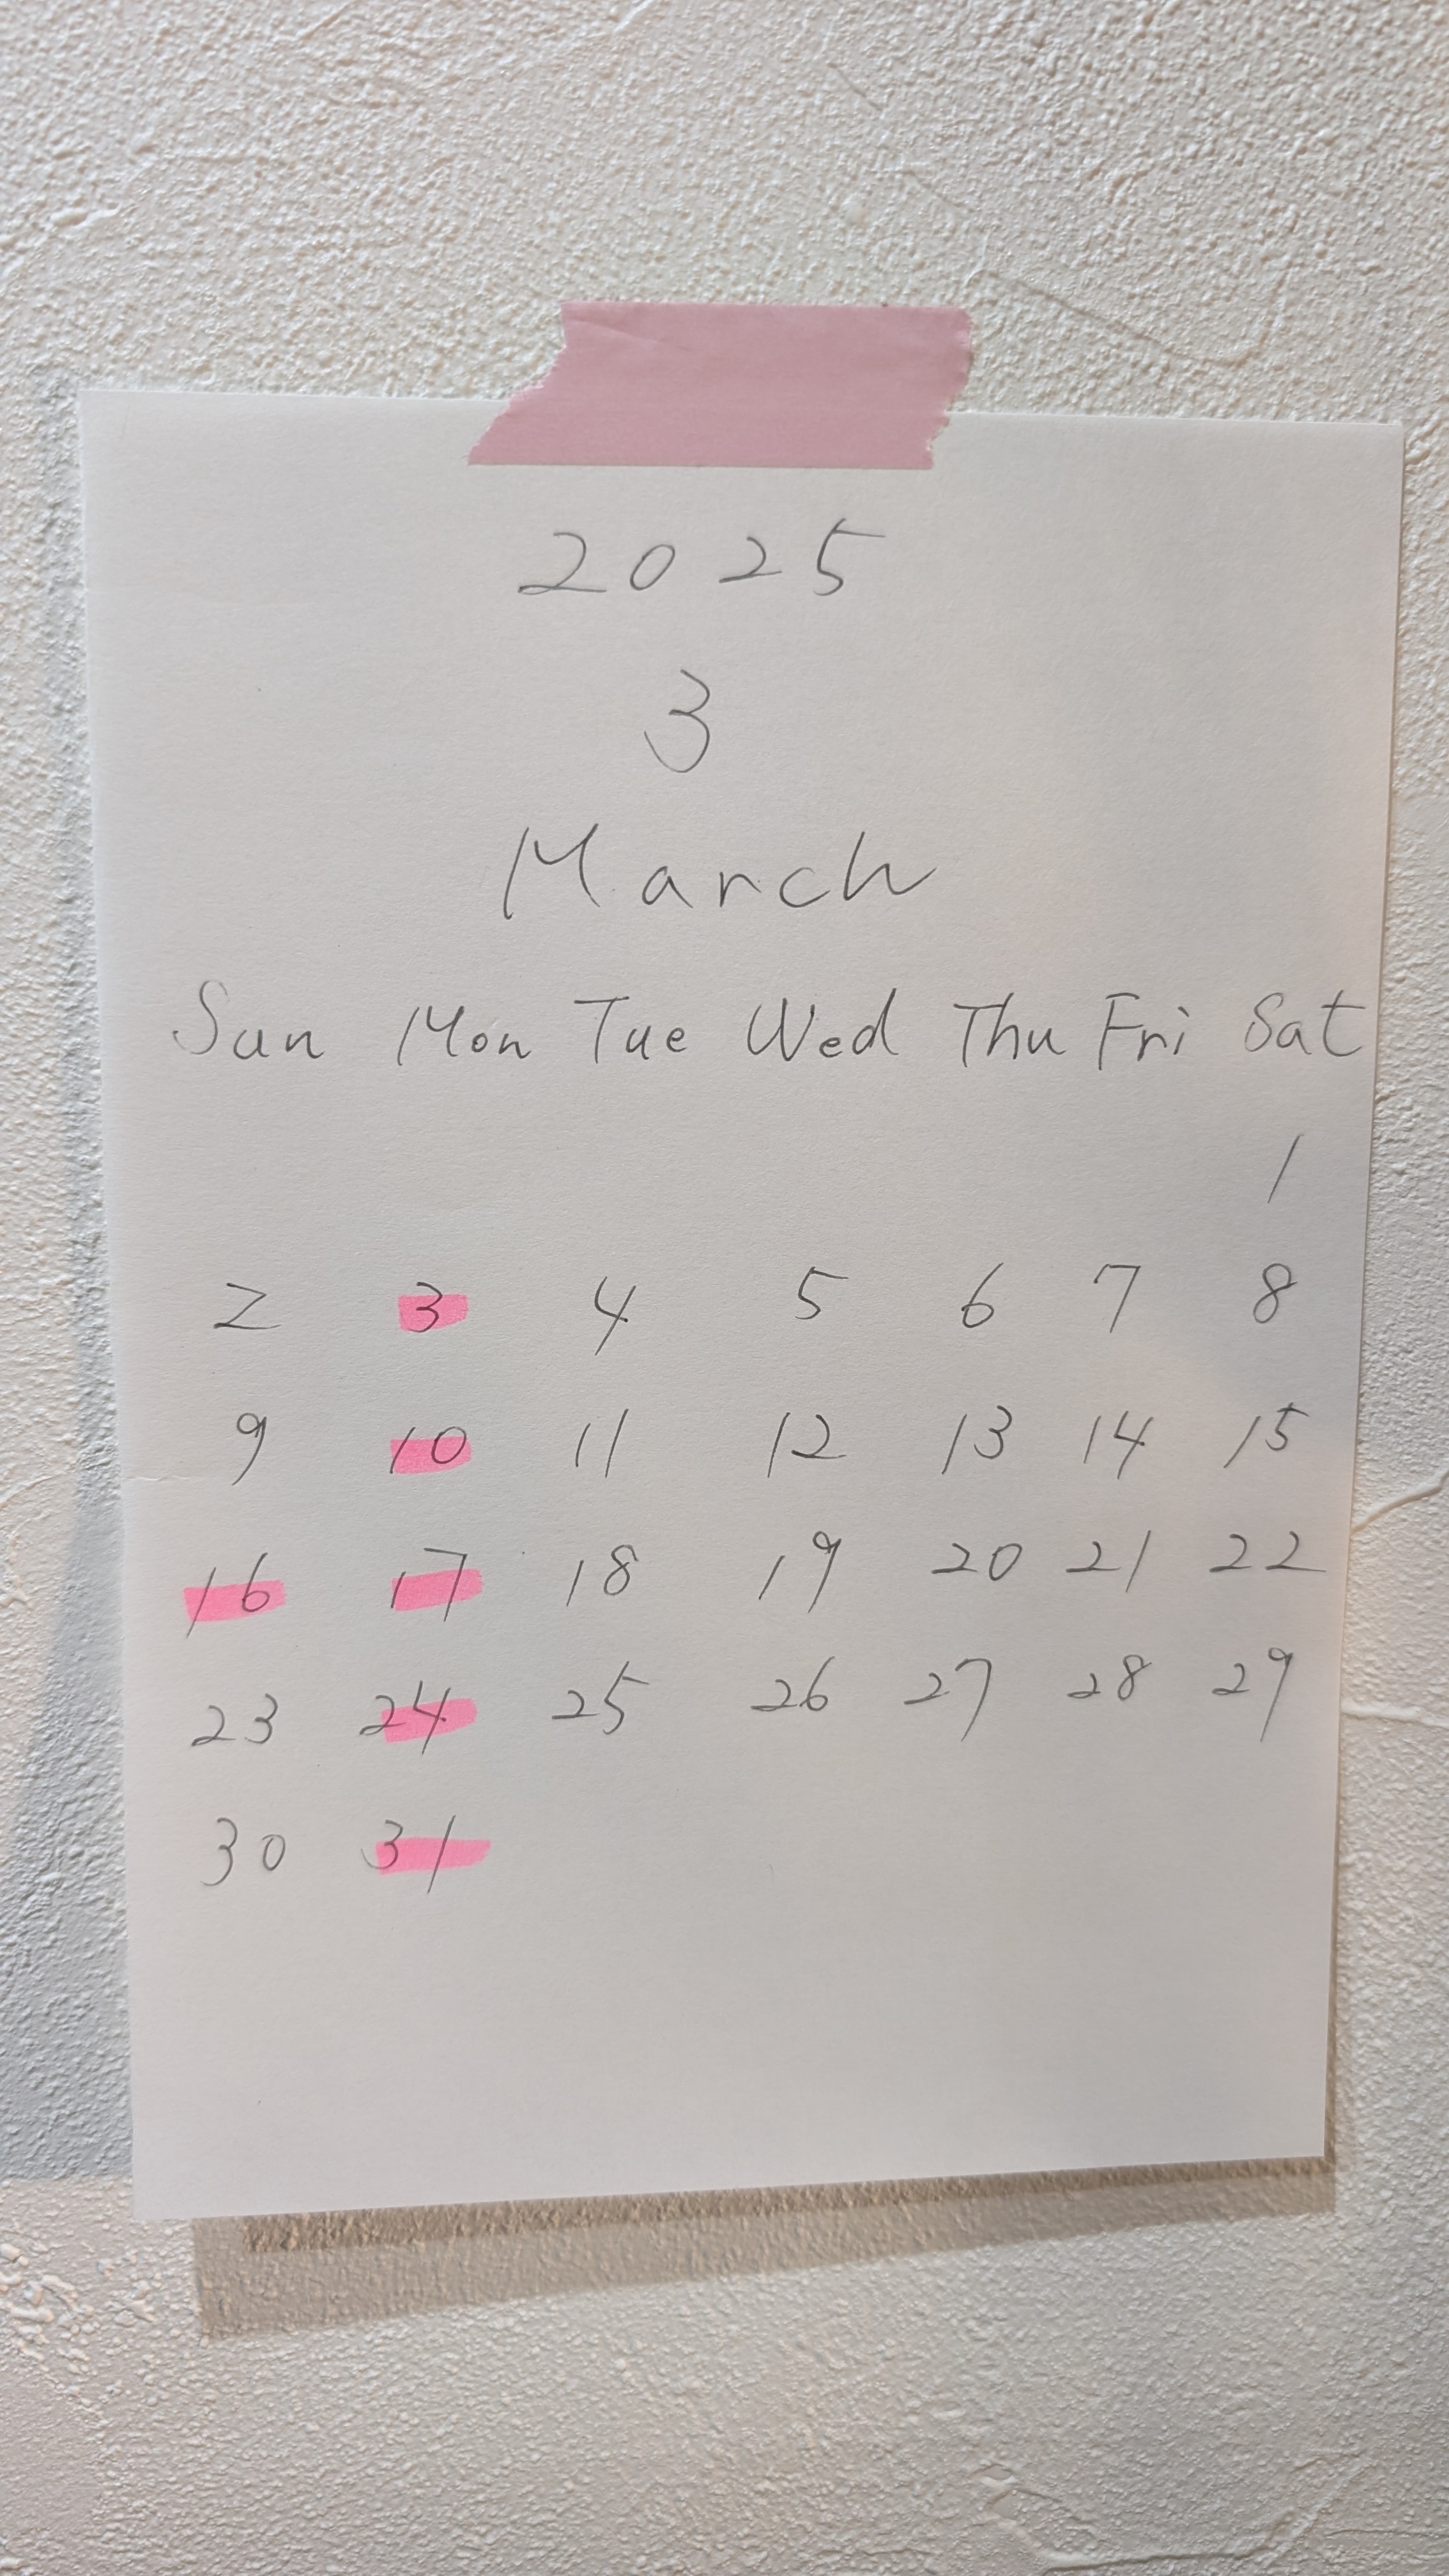 2025
3
March
Sun Mon Tue Wed Thu Fri Sat
1
2 3 4 5 6 7 8
9 10 11 12 13 14 15
16 17 18 19 20 21 22
23 24 25 26 27 28 29
30 31